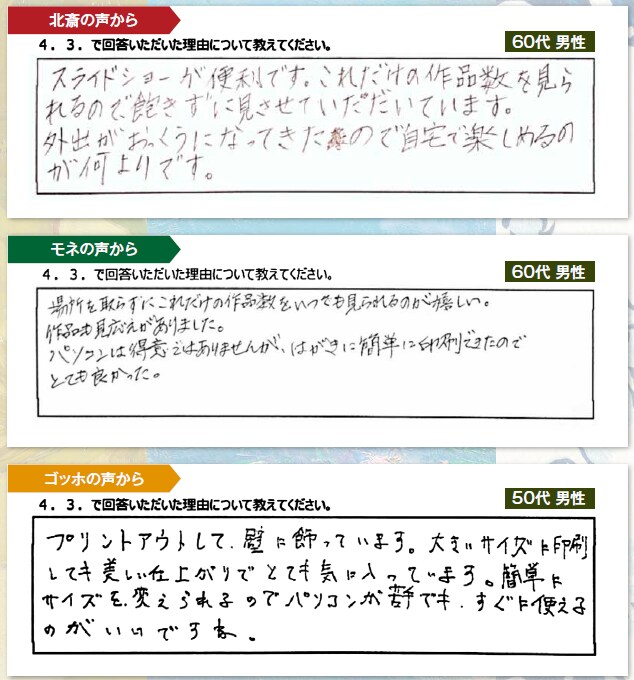 北斎の声から
60代 男性
4．3．で回答いただいた理由について教えてください。
スライドショーが便利です。これだけの作品数を見ら
れるので飽きずに見させていただいています。
外出がおっくうになってきたので自宅で楽しめるの
が何よりです。
モネの声から
60代 男性
4．3．で回答いただいた理由について教えてください。
場所を取らずにこれだけの作品数をいつでも見られるのが嬉しい。
作品も見応えがありました。
パソコンは得意ではありませんが、はがきに簡単に印刷できたので
とても良かった。
ゴッホの声から
50代 男性
4．3．で回答いただいた理由について教えてください。
プリントアウトして、壁に飾っています。大きいサイズに印刷
しても美しい仕上がりでとても気に入っています。簡単に
サイズを変えられるのでパソコンが苦手でも、すぐに使える
のがいいですね。